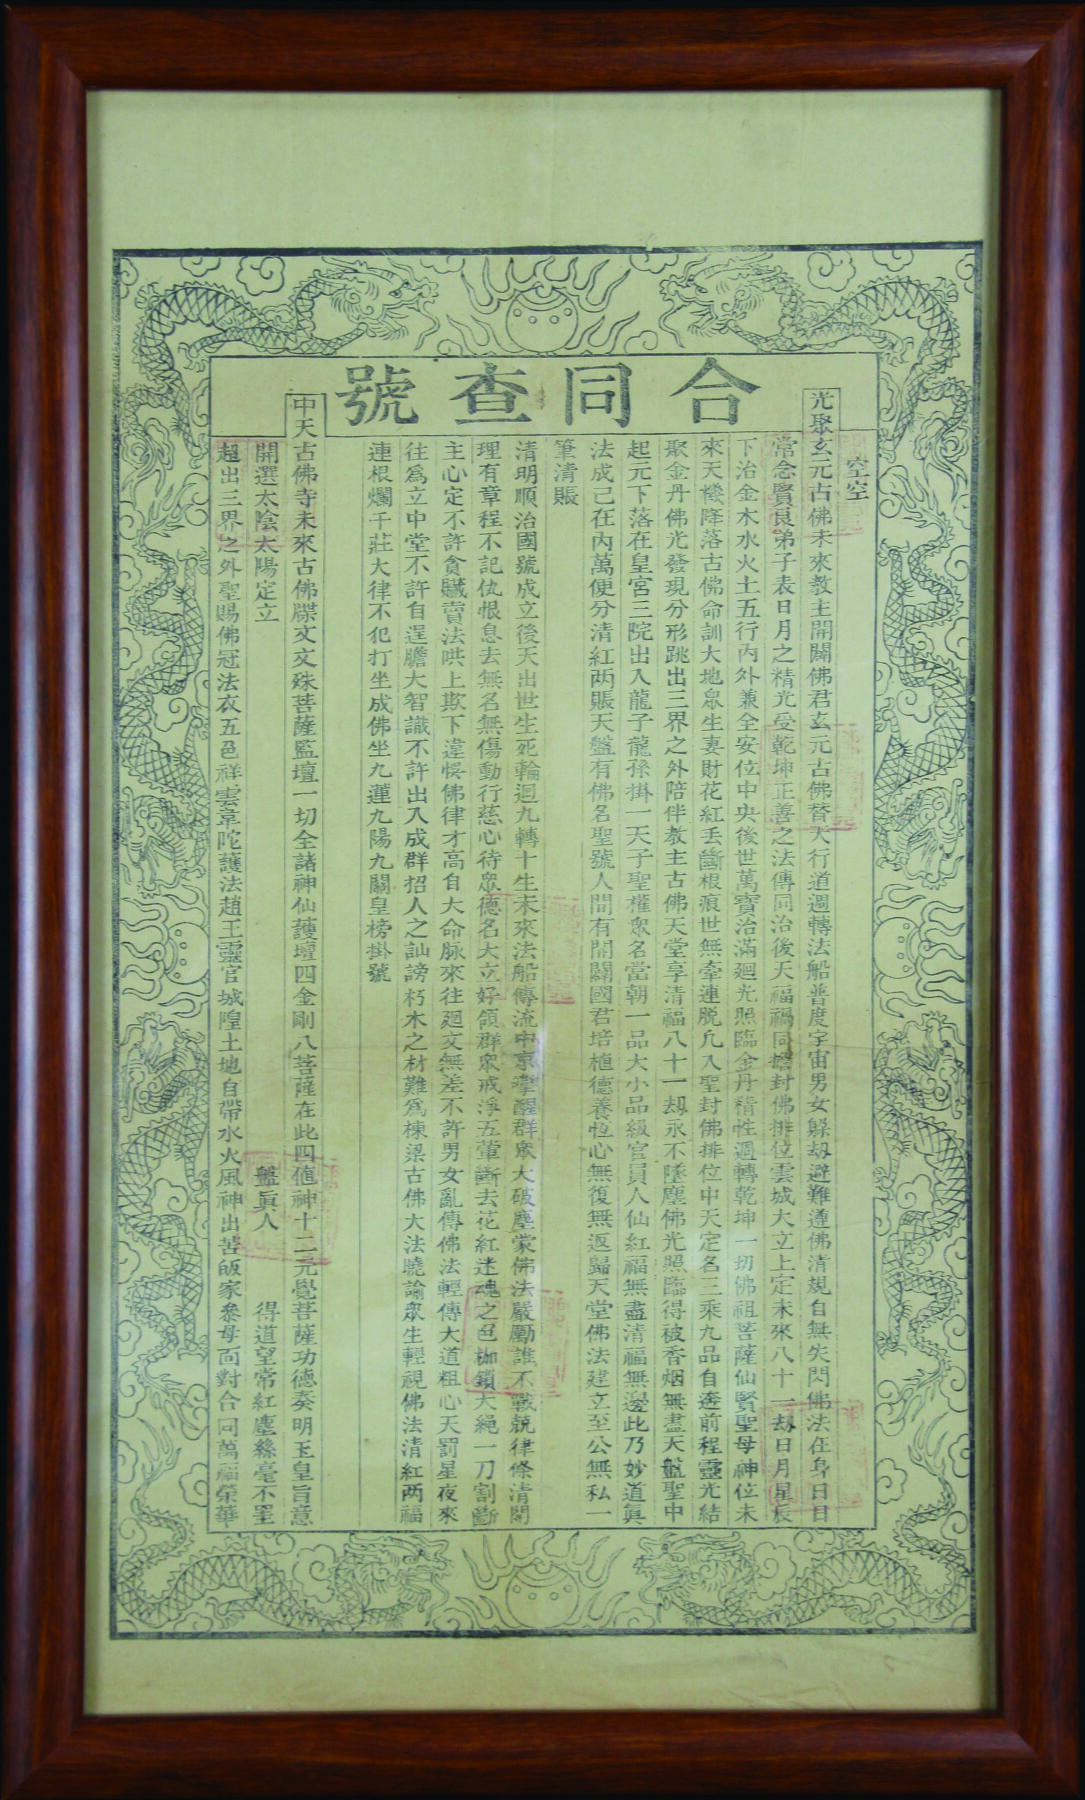 合同查號
空空
光聚玄元古佛未來教主開闢佛君玄元古佛替天行道週轉法船普度宇宙男女躲劫避難遵佛清規自無失閃佛法在身日日
常念賢良弟子表日月之精光受乾坤正善之法傳同治後天福禍同擔封佛排位雲城大立上定未來八十一劫日月星辰
下治金木水火土五行內外兼全安位中央後世萬寶治滿廻光照臨金丹精性週轉乾坤一切佛祖菩薩仙賢聖母神位未
來天機降落古佛命訓大地眾生妻財花紅丢斷根痕世無牽連脫凡入聖封佛排位中天定名三乘九品自透前程靈光結
聚金丹佛光發現分形跳出三界之外陪伴教主古佛天堂享清福八十一劫永不墜塵佛光照臨得破香烟無盡天盤聖中
起元下落在皇宮三院出入龍子龍孫掛一天子聖權眾名當朝一品大小品級官員人仙紅福無盡清福無邊此乃妙道眞
法成己在內萬便分清紅两賬天盤有佛名聖號人間有開闢國君培植德養恆心無復無返歸天堂佛法建立至公無私一
筆清賬
清明順治國號成立後天出世生死輪迴九轉十生未來法船傳流中京攣醒群眾大破塵蒙佛法嚴勵誰不戰兢律條清閗
理有章程不記仇恨息去無名無傷動行慈心待眾德名大立好領群眾戒淨五葷斷去花紅迷魂之色枷鎖大繩一刀割斷
主心定不許貪賍賣法哄上欺下違悞佛律才高自大命脉來往廻文無差不許男女亂傳佛法輕傳大道粗心天罰星夜來
往爲立中堂不許自逞膽大智識不許出入成群招人之訕謗朽木之材難爲棟梁古佛大法曉諭眾生輕視佛法清紅两福
連根爛千莊大律不犯打坐成佛坐九蓮九陽九關皇榜掛號
中天古佛寺未來古佛牒文文殊菩薩監壇一切全諸神仙護壇四金剛八菩薩在此四値神十二元覺菩薩功德奏明玉皇旨意
開選太陰太陽定立 盤眞人 得道望常紅塵絲毫不罣
超出三界之外聖賜佛冠法衣五色祥雲韋陀護法趙王靈官城隍土地自帶水火風神出苦皈家叅母面對合同萬福榮華